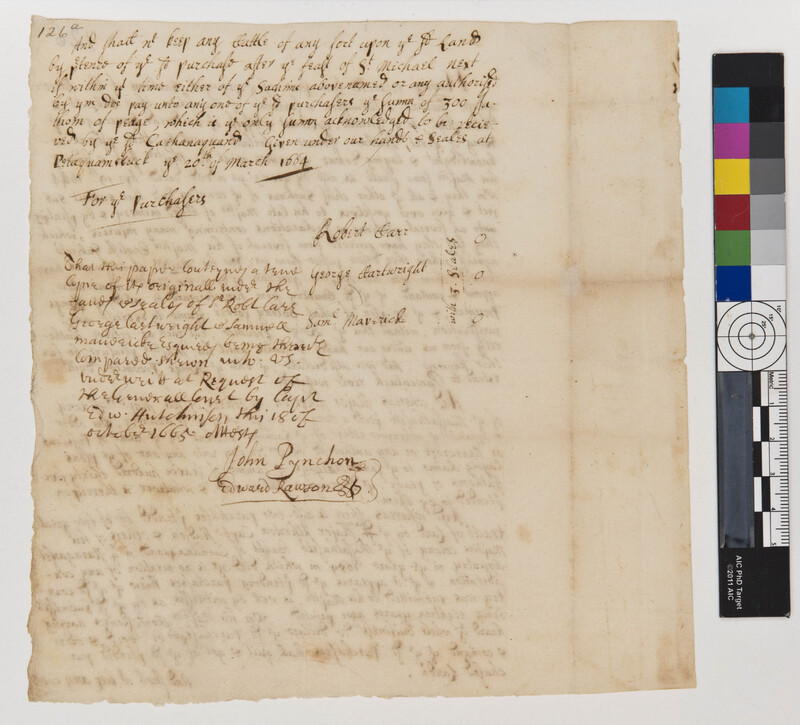 126a
And shall not keep any Cattle of any sort upon ye sd Land
by ptence of ye sd purchase after ye feast of St Michael next
If within yt time either of ye Sachims abovenamed or any authorised
by ym doe pay unto any one of ye sd purchasers ye summ of 300 fa-
thom of peage, which is ye only summ acknowledged to be recie-
ved by ye sd Cashanaquand. Given under our hands & Seales at
Petaquamscuck ye 20th of March 1664
For ye purchasers
Robert Carr 0
George Cartwright 0
Saml Maverick 0
with their seales
That this paper conteynes a true
Copie of the originall under the
hands & seales of Sr Robt Carr
George Cartwright & Samuell
Mavericke Esquiers being
Compared & shewn unto us
underwrit at Request of
the Generall Court by Capt
Edw. Hutchinson this 18 of
october 1665 Attests
John Pynchon
Edward Rawson
mm
Metric
AIC PhD Target
©2011 AIC